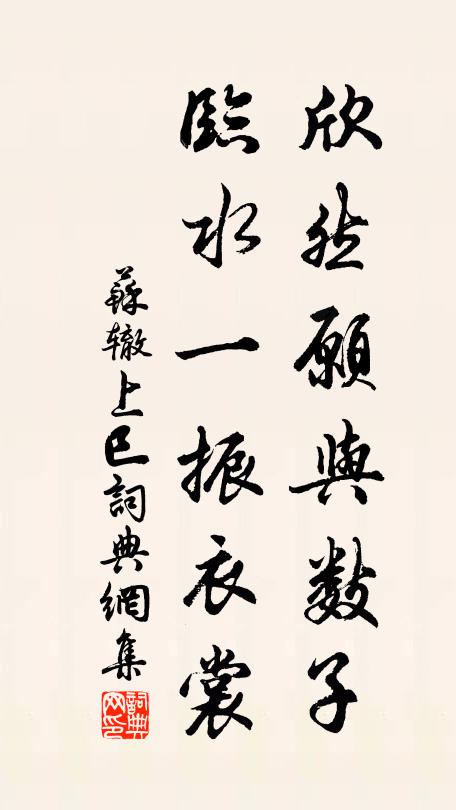 欣然願與數子
臨水一振衣裳
蘇辙上巳詞典網集
詞典网印